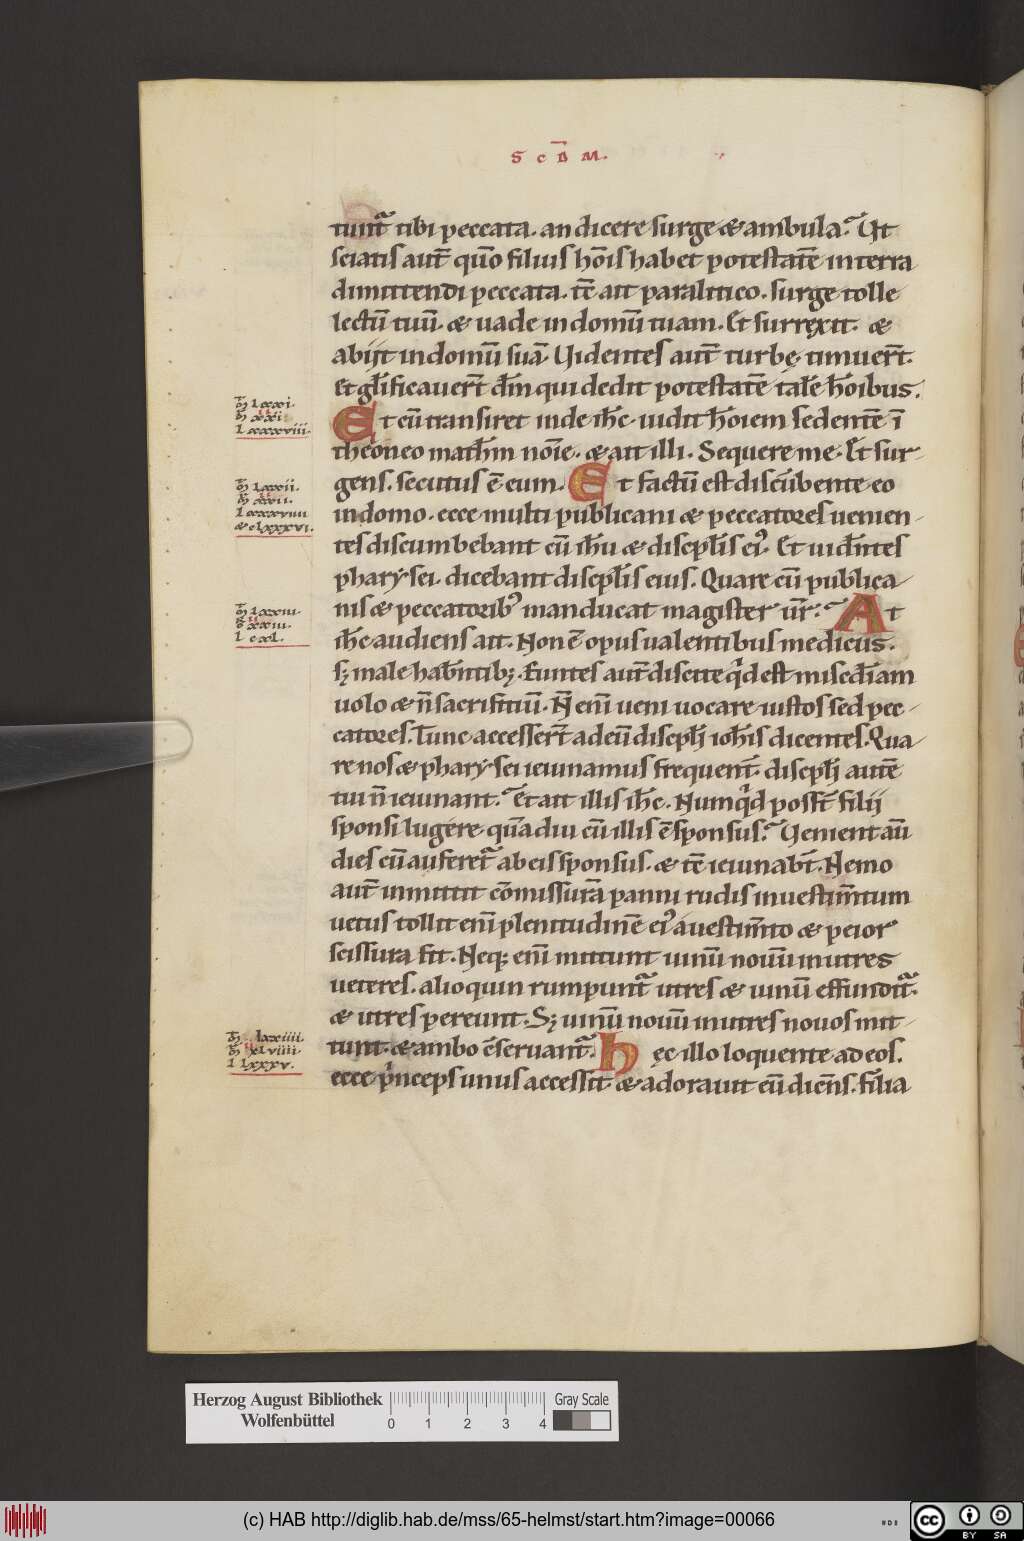 S C D̅ M.
tunt᷑ tibi peccata. an dicere surge & ambula? Ut
sciatis aut̅ qm̅o filius ho̅is habet potestate̅ in terra
dimittendi peccata. tc̅ ait paralitico. surge tolle
lectu̅ tuu̅. & uade in domu̅ tuam. Et surrexit. &
abijt in domu̅ sua̅. Uidentes aut̅ turbę timuer̅t.
Et gl̅ificauer̅t d̅m qui dedit potestate̅ tale̅ ho̅ibus.
Et cu̅ transiret inde ih̅c. uidit ho̅iem sedente̅ i̅
theoneo math̅m noi̅e. & ait illi. Sequere me. Et sur-
gens. secutus e̅ eum. Et factu̅ est discu̅bente eo
in domo. ecce multi publicani & peccatores uenien-
tes discumbebant cu̅ ih̅u & discipl̅is ei᾿. Et uide̅ntes
pharẏsei. dicebant discipl̅is eius. Quare cu̅ publica-
nis & peccatorib᾿ manducat magister ur̅? At
ih̅c audiens ait. Non e̅ opus ualentibus medicus.
sꝫ male habe̅ntibꝫ. Euntes aut̅ discite qͥd est misc̅diam
uolo & n̅ sacrificiu̅. N̅ eni̅ ueni uocare iustos sed pec-
catores. Tunc accesser̅t ad eu̅ discipl̅i ioh̅is dicentes. Qua-
re nos & pharẏsei ieiunamus frequent̅. discipl̅i aute̅
tui n̅ ieiunant? Et ait illis ih̅c. Numqͥd poss̅t filij
sponsi lugere qua̅diu cu̅ illis e̅ sponsus? Uenient au̅
dies cu̅ auferet᷑ ab eis sponsus. & tc̅ ieiunab̅t. Nemo
aut̅ inmittit co̅missura̅ panni rudis in uestim̅tum
uetus tollit eni̅ plenitudine̅ ei᾿ a uestim̅to & peior
scissura fit. Neqꝫ eni̅ mittunt uinu̅ nouu̅ in utres
ueteres. alioquin rumpunt᷑ utres & uinu̅ effundit᷑.
& utres pereunt. Sꝫ uinu̅ nouu̅ in utres nouos mit-
tunt. & ambo co̅seruant᷑. hęc illo loquente ad eos.
ecce pͥnceps unus accessit & adorauit eu̅ dice̅ns. filia
Herzog August Bibliothek
Wolfenbüttel
0 1 2 3 4
Gray Scale
(c) HAB http://diglib.hab.de/mss/65-helmst/start.htm?image=00066
cc BY SA